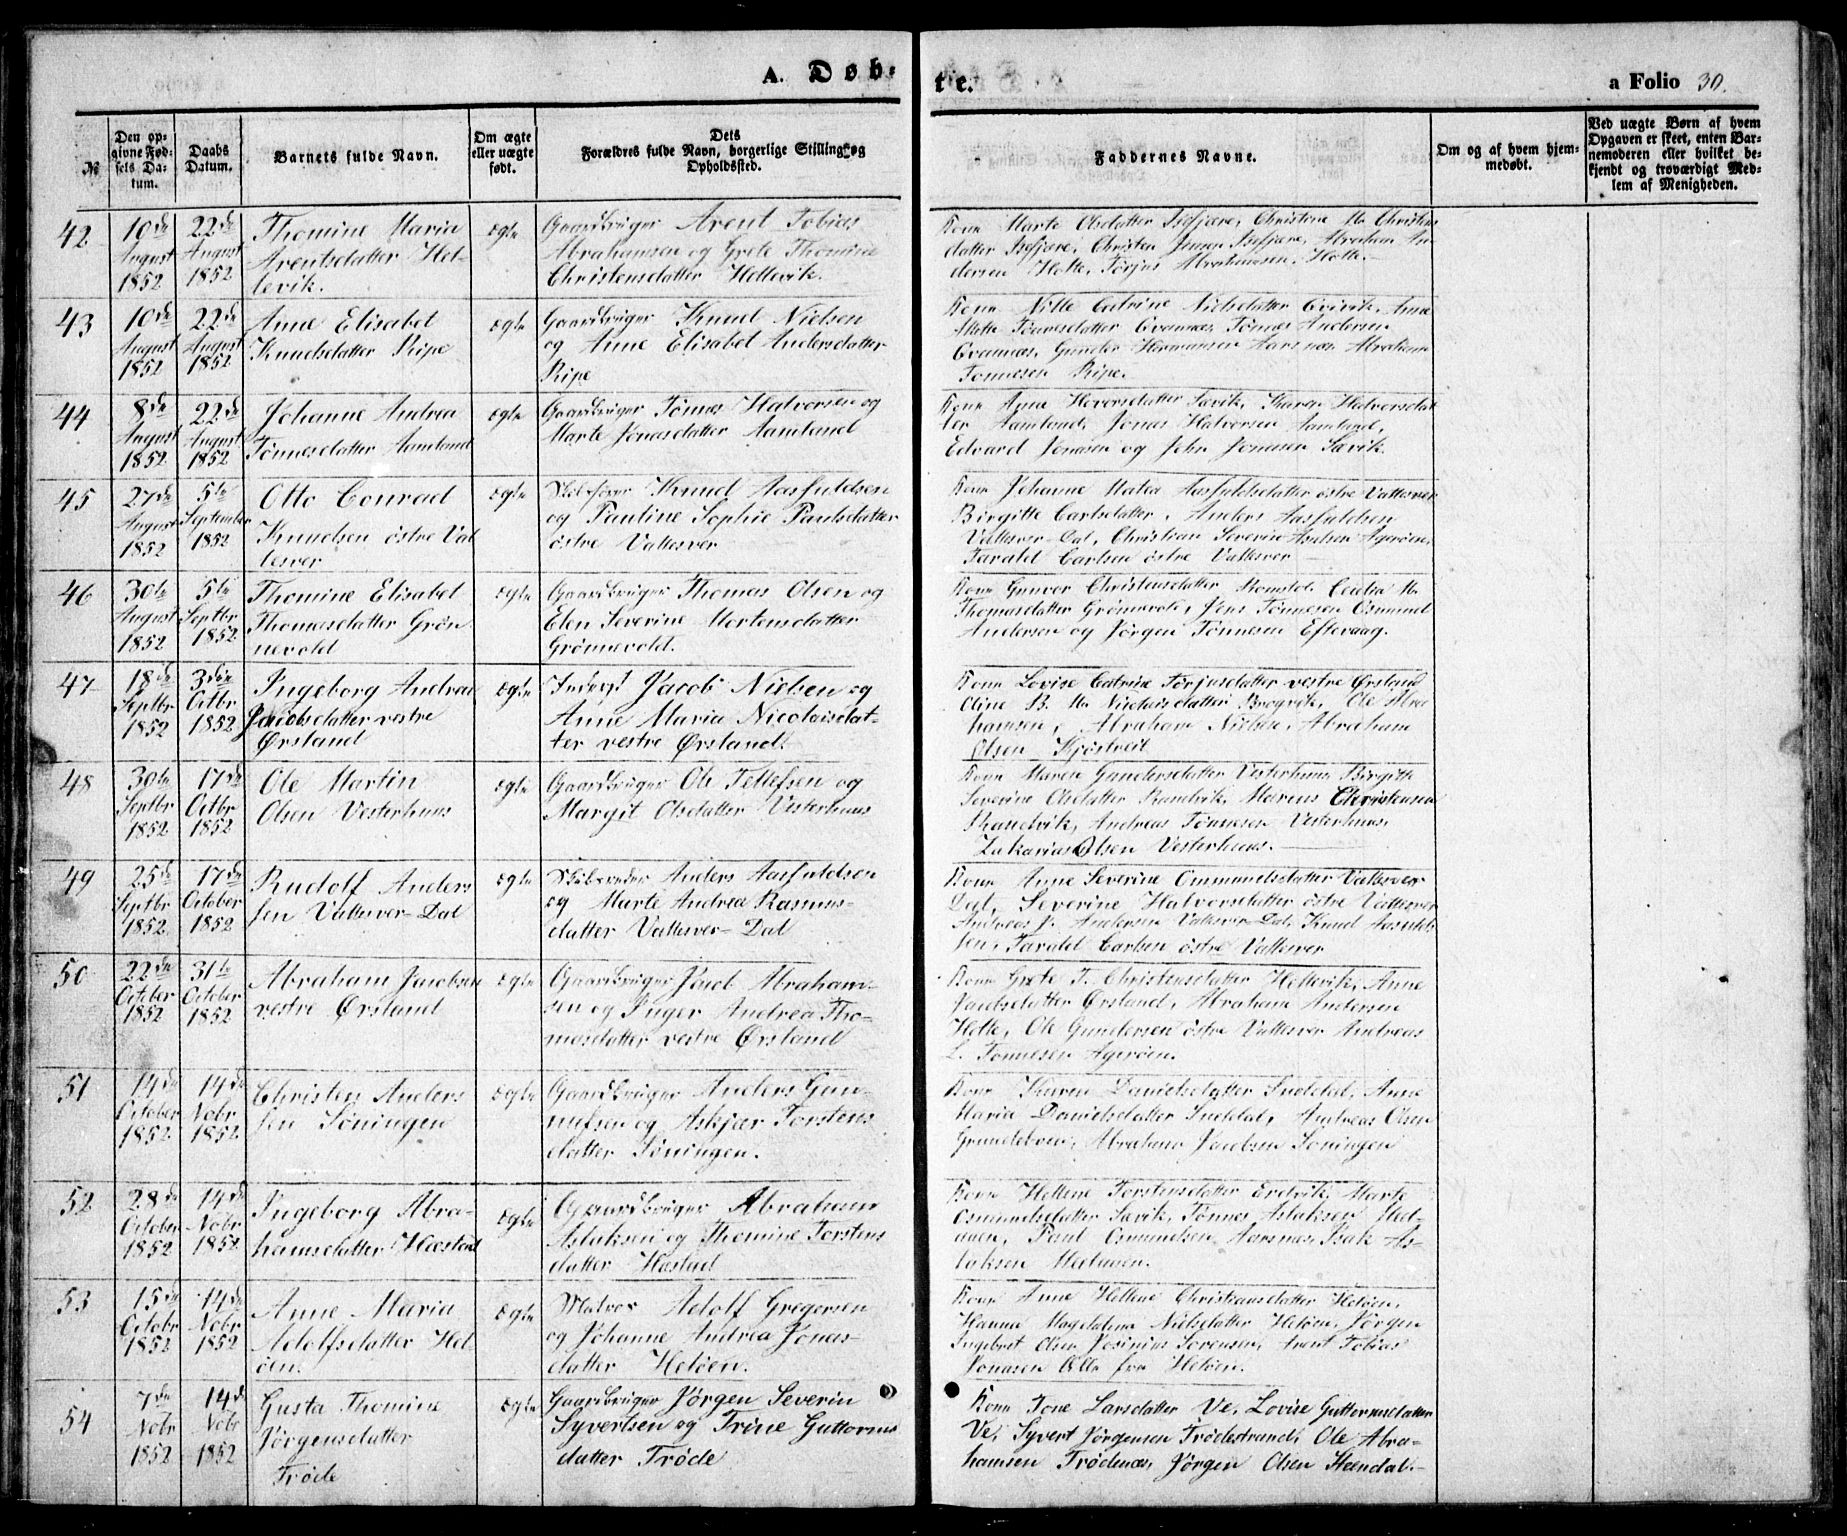 A. Døb-
te.
a Folio 30.
№
Den op-
givne Fød-
sels Da-
tum.
Daabs
Datum.
Barnets fulde Navn.
Om ægte
eller uægte
født.
Dets
Forældres fulde Navn, borgerlige Stilling og
Opholdssted.
Faddernes Navne.
Om og af hvem hjem-
medøbt.
Ved uægte Børn af hvem
Opgaven er skeet, enten Bar-
nemoderen eller hvilket be-
kjendt og troværdigt Med-
lem af Menigheden.
42
10de
August
1852
22de
August
1852
Thomine Maria
Arentsdatter Hel-
levik.
ægte
Gaardbruger Arent Tobias
Abrahamsen og Grete Thomine
Christensdatter Hellevik.
Kone Marte Olsdatter Isefjære, Christine M. Christens
datter Isefjære, Christen Jensen Isefjære, Abraham An-
dersen Holte, Torjus Abrahamsen, Holte.
43
10de
August
1852
22de
August
1852
Anne Elisabet
Knudsdatter Ripe
ægte
Gaardbruger Knud Nielsen
og Anne Elisabet Andersdatter
Ripe
Kone Nille Catrine Nielsdatter Evivik, Anne
Mette Toaresdatter Qvannæs, Tønnes Andersen
Qvannæs, Gunder Hermansen Aarsnæs, Abraham
Tønnesen Ripe.
44
8de
August
1852
22de
August
1852
Johanne Andrea
Tønnesdatter Aamland
ægte
Gaardbruger Tønnes Halvorsen og
Marte Jonasdatter Aamland
Kone Anna Heversdatter Sævik, Karen Halvorsdat
ter Aamland, Jonas Halvorsen Aamland,
Edvard Jonasen og John Jonasen Sævik.
45
27de
August
1852
5te
September
1852
Otto Conrad
Knudsen östre Val
lesver
ægte
Skibsfører Knud Aasfuldsen
og Pauline Sophie Paulsdatter
östre Vallesver
Kone Johanne Matea Aasfuldsdatter östre Vallesver
Birgitte Carlsdatter, Anders Aasfuldsen
Vallesver-Dal, Christian Severin Andsen Ageröen,
Tarald Carlsen östre Vallesver
46
30te
August
1852
5te
Septbr
1852
Thomine Elisabet
Thomasdatter Grön
nevold
ægte
Gaardbruger Thomas Olsen og
Elen Severine Mortensdatter
Grønnevold.
Kone Gunvor Christensdatter Homstöl, Cecilia M.
Thomasdatter Grønnevold, Jens Tønnesen Osmund
Andersen og Jørgen Tønnesen Eftevaag.
47
18de
Septbr
1852
3die
Octbr
1852
Ingeborg Andrea
Jacobsdatter vestre
Ørsland
ægte
Inderst Jacob Nielsen og
Anne Maria Nicolaisdat-
ter vestre Ørsland.
Kone Lovise Catrine Torjusdatter vestre Ørsland
Oline B. M. Nicolaisdatter Brøgvik, Ole Abra
hamsen, Abraham Nielsen, Abraham
Olsen Kjöstveit
48
30te
Septbr
1852
17de
Octbr
1852
Ole Martin
Olsen Vesterhuus
ægte
Gaardbruger Ole Tellefsen og
Margit Olsdatter Vesterhuus
Kone Maren Gundersdatter Vesterhuus Birgitte
Severine Olsdatter Randvik, Marius Christensen
Randvik, Andreas Tønnesen Vesterhuus,
Zakarias Olsen Vesterhuus.
49
25de
Septbr
1852
17de
October
1852
Rudolf Anders
sen Vallesver-Dal
ægte
Anders Aasfuldsen
og Marte Andrea Rasmus-
datter Vallesver-Dal
Kone Anne Severine Ommundsdatter Vallesver
Dal, Severine Halvorsdatter östre Vallesver
Andreas J. Andersen Vallesver-Dal, Knud Aasfuld-
sen, Tarald Carlsen östre Vallesver
50
22de
October
1852
31te
October
1852
Abraham Jacobsen
vestre Ørsland
ægte
Gaardbruger Jacob Abraham-
sen og Inger Andrea Tho-
masdatter vestre Ørsland
Kone Grete T. Christensdatter Hellevik, Anne
Ørsland, Abraham Andersen
Holte, Ole Gundersen östre Vallesver Andreas
L. Tönnesen Ageröen.
51
14de
October
1852
14de
Nobr
1852
Christen Anders
sen Söningen
ægte
Gaardbruger Anders Gun-
nufsen og Askjær Torstens
datter Söningen.
Kone Karen Danielsdatter Sueldal, Anne
Maria Danielsdatter Sueldal, Andreas Olsen
Grundeboen, Abraham Jacobsen Söningen
52
28de
October
1852
14de
Nobr
1852
Ingeborg Abra-
hamsdatter Hæstad
ægte
Gaardbruger Abraham
Aslaksen og Thomine Torstens
datter Hæstad
Kone Hellene Torstensdatter Eredvik, Marte
Osmundsdatter Sævik, Tønnes Aslaksen Hed-
aaen, Paul Osmundsen Aarsnæs, Isak As-
laksen Hedaaen.
53
15de
Octobr
1852
14de
Nobr
1852
Anne Maria
Adolfsdatter Hel
öen.
ægte
Matros Adolf Gregersen
og Johanne Andrea Jonas-
datter Helöen.
Kone Anne Hellene Christiansdatter Helöen,
Hanna Magdalena Nielsdatter Helöen, Jörgen
Ingebret Olsen Josinius Sorensen, Arent Tobias
Jonasen Alle fra Helöen.
54
7de
Nobr
1852
14de
Nobr
1852
Gusta Thomine
Jörgensdatter
Tröde
ægte
Gaardbruger Jörgen Severin
Syvertsen og Trine Guttorms
datter Tröde
Kone Tone Larsdatter Ve, Lovise Guttormsdatter
Ve, Syvert Jörgensen Trödestrand, Ole Abra-
hamsen Trödenæs, Jörgen Olsen Steendal.